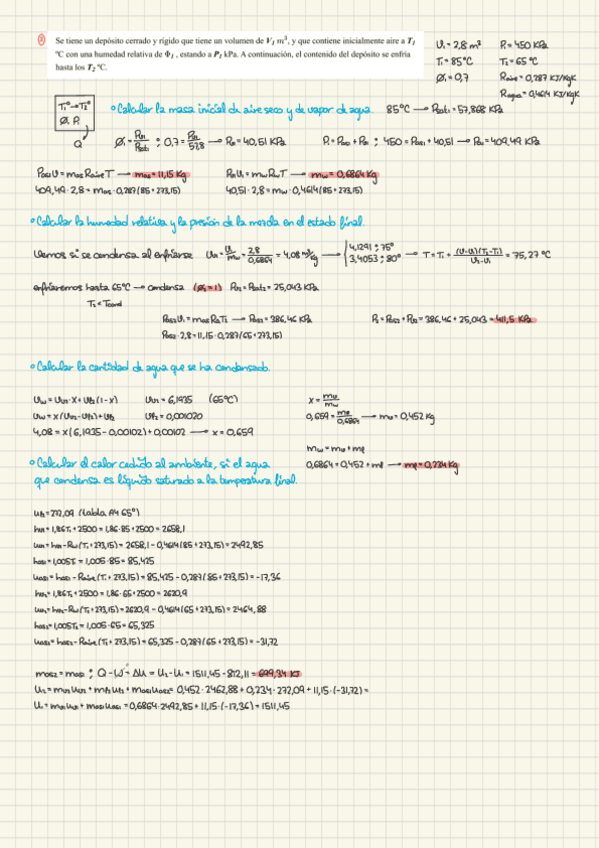 ② Se tiene un depósito cerrado y rígido que tiene un volumen de V₁ m³, y que contiene inicialmente aire a T₁
ºC con una humedad relativa de Φ₁ , estando a P₁ kPa. A continuación, el contenido del depósito se enfría
hasta los T₂ ºC.
V₁ = 2,8 m³ P₁ = 450 KPa
T₁ = 85ºC T₂ = 65ºC
Ø₁ = 0,7 Raire = 0,287 KJ/KgK
Ragua = 0,4614 KJ/KgK
T₁º → T₂º
Ø₁ P₁
Q
◦ Calcular la masa inicial de aire seco y de vapor de agua. 85ºC → Psat₁ = 57,868 KPa
Ø₁ = Pv₁/Psat₁ ; 0,7 = Pv₁/57,8 → Pv₁ = 40,51 KPa P₁ = Pas₁ + Pv₁ ; 450 = Pas₁ + 40,51 → Pas₁ = 409,49 KPa
Pas₁V = mas Raire T → mas = 11,15 Kg Pv₁V = mw RwT → mw = 0,6864 Kg
409,49 · 2,8 = mas · 0,287 (85 + 273,15) 40,51 · 2,8 = mw · 0,4614 (85 + 273,15)
◦ Calcular la humedad relativa y la presión de la mezcla en el estado final.
Vemos si se condensa al enfriarse = V₁/mw = 2,8/0,6864 = 4,08 m³/Kg → { 4,1291 ; 75º
3,4053 ; 80º → T = T₁ + (V-V₁)(T₂-T₁)/V₂-V₁ = 75,27ºC
enfriaremos hasta 65ºC → condensa (Ø₂ = 1) Pv₂ = Psat₂ = 25,043 KPa
T₂ < Tcond
Pas₂V₁ = mas RaT₂ → Pas₂ = 386,46 KPa P₂ = Pas₂ + Pv₂ = 386,46 + 25,043 = 411,5 KPa
Pas₂ · 2,8 = 11,15 · 0,287 (65 + 273,15)
◦ Calcular la cantidad de agua que se ha condensado.
Vw = Vv₂ · X + Vf₂ (1 - X) Vv₂ = 6,1935 (65ºC) X = mv/mw
Vw = X (Vv₂ - Vf₂) + Vf₂ Vf₂ = 0,001020 0,659 = mv/0,6864 → mv = 0,452 Kg
4,08 = X (6,1935 - 0,00102) + 0,00102 → X = 0,659
mw = mv + mf
0,6864 = 0,452 + mf → mf = 0,234 Kg
◦ Calcular el calor cedido al ambiente, si el agua
que condensa es líquido saturado a la temperatura final.
Uf₂ = 272,09 (tabla A4 65º)
hv₁ = 1,86T₁ + 2500 = 1,86 · 85 + 2500 = 2658,1
Uv₁ = hv₁ - Rw (T₁ + 273,15) = 2658,1 - 0,4614 (85 + 273,15) = 2492,85
has₁ = 1,005T₁ = 1,005 · 85 = 85,425
Uas₁ = has₁ - Raire (T₁ + 273,15) = 85,425 - 0,287 (85 + 273,15) = -17,36
hv₂ = 1,86T₂ + 2500 = 1,86 · 65 + 2500 = 2620,9
Uv₂ = hv₂ - Rw (T₂ + 273,15) = 2620,9 - 0,4614 (65 + 273,15) = 2464,88
has₂ = 1,005T₂ = 1,005 · 65 = 65,325
Uas₂ = has₂ - Raire (T₂ + 273,15) = 65,325 - 0,287 (65 + 273,15) = -31,72
mas₂ = mas₁ ; Q - W = ΔU = U₂ - U₁ = 1511,45 - 812,11 = 699,34 KJ
U₂ = mv₂Uv₂ + mf₂Uf₂ + mas₂Uas₂ = 0,452 · 2462,88 + 0,234 · 272,09 + 11,15 · (-31,72) =
U₁ = mv₁Uv₁ + mas₁Uas₁ = 0,6864 · 2492,85 + 11,15 · (-17,36) = 1511,45